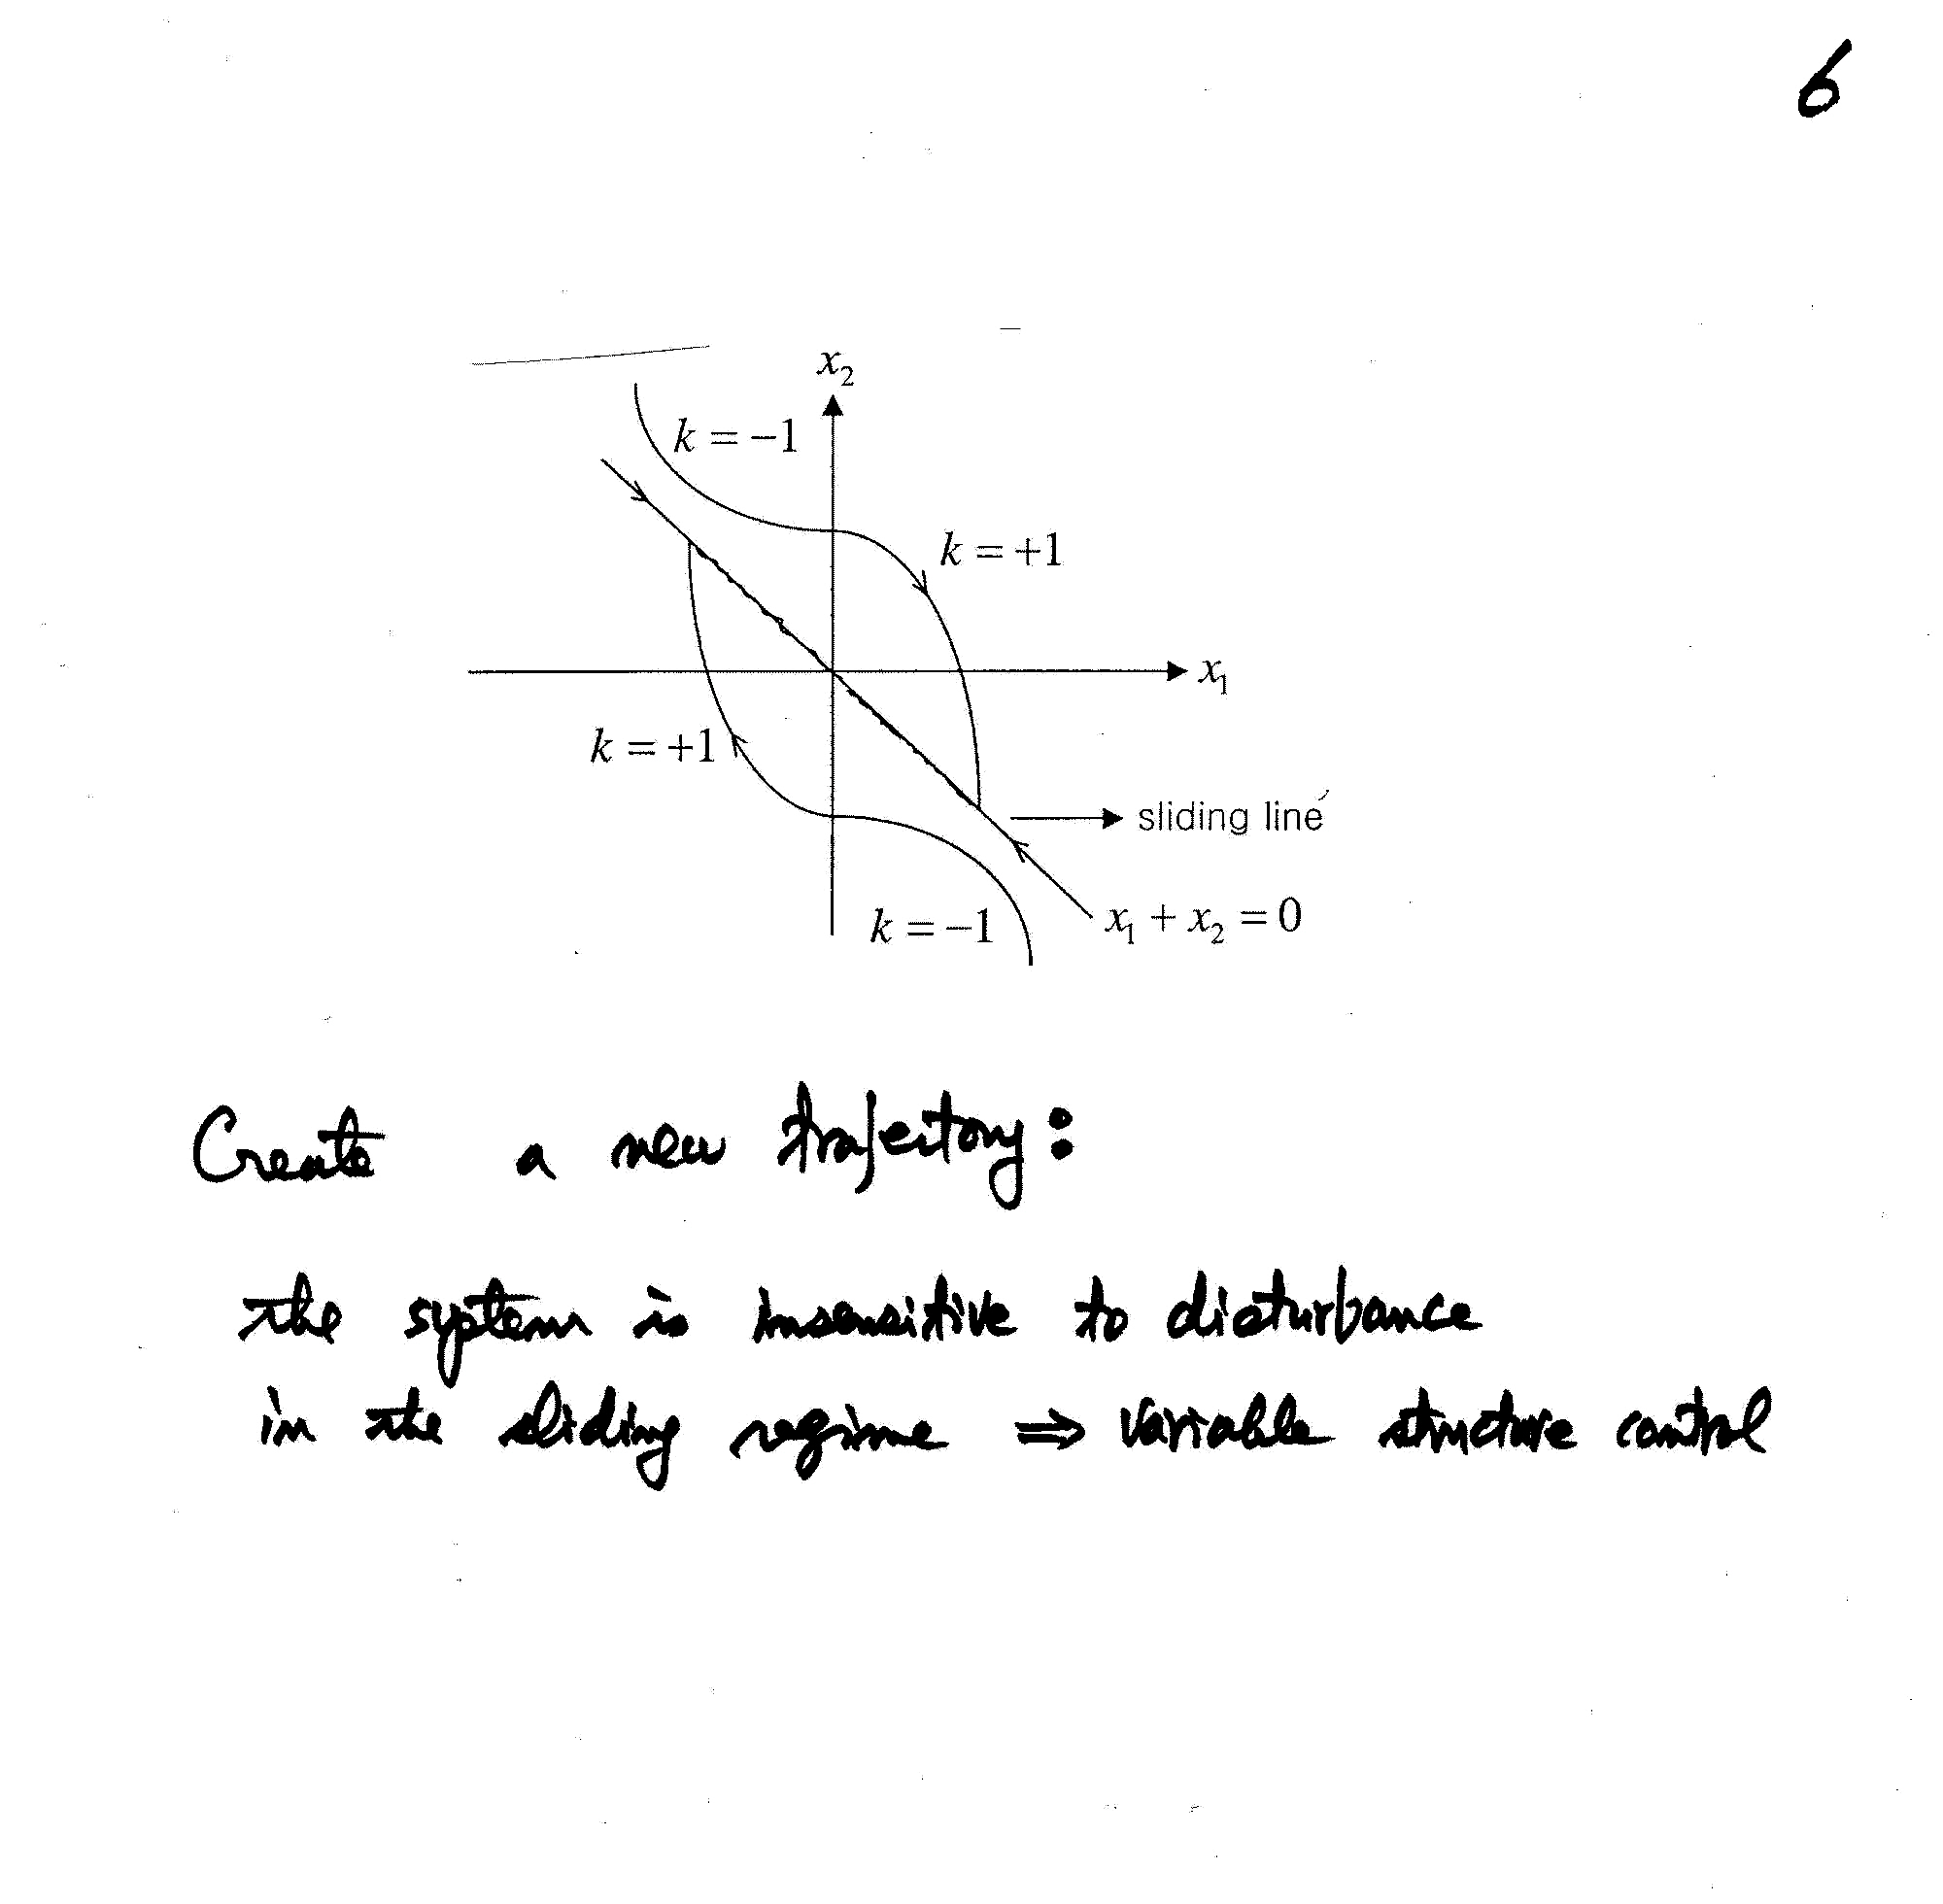 6
x₂
k = −1
k = +1
x₁
k = +1
sliding line
k = −1
x₁ + x₂ = 0
Create a new trajectory:
the system is insensitive to disturbance
in the sliding regime ⇒ variable structure control